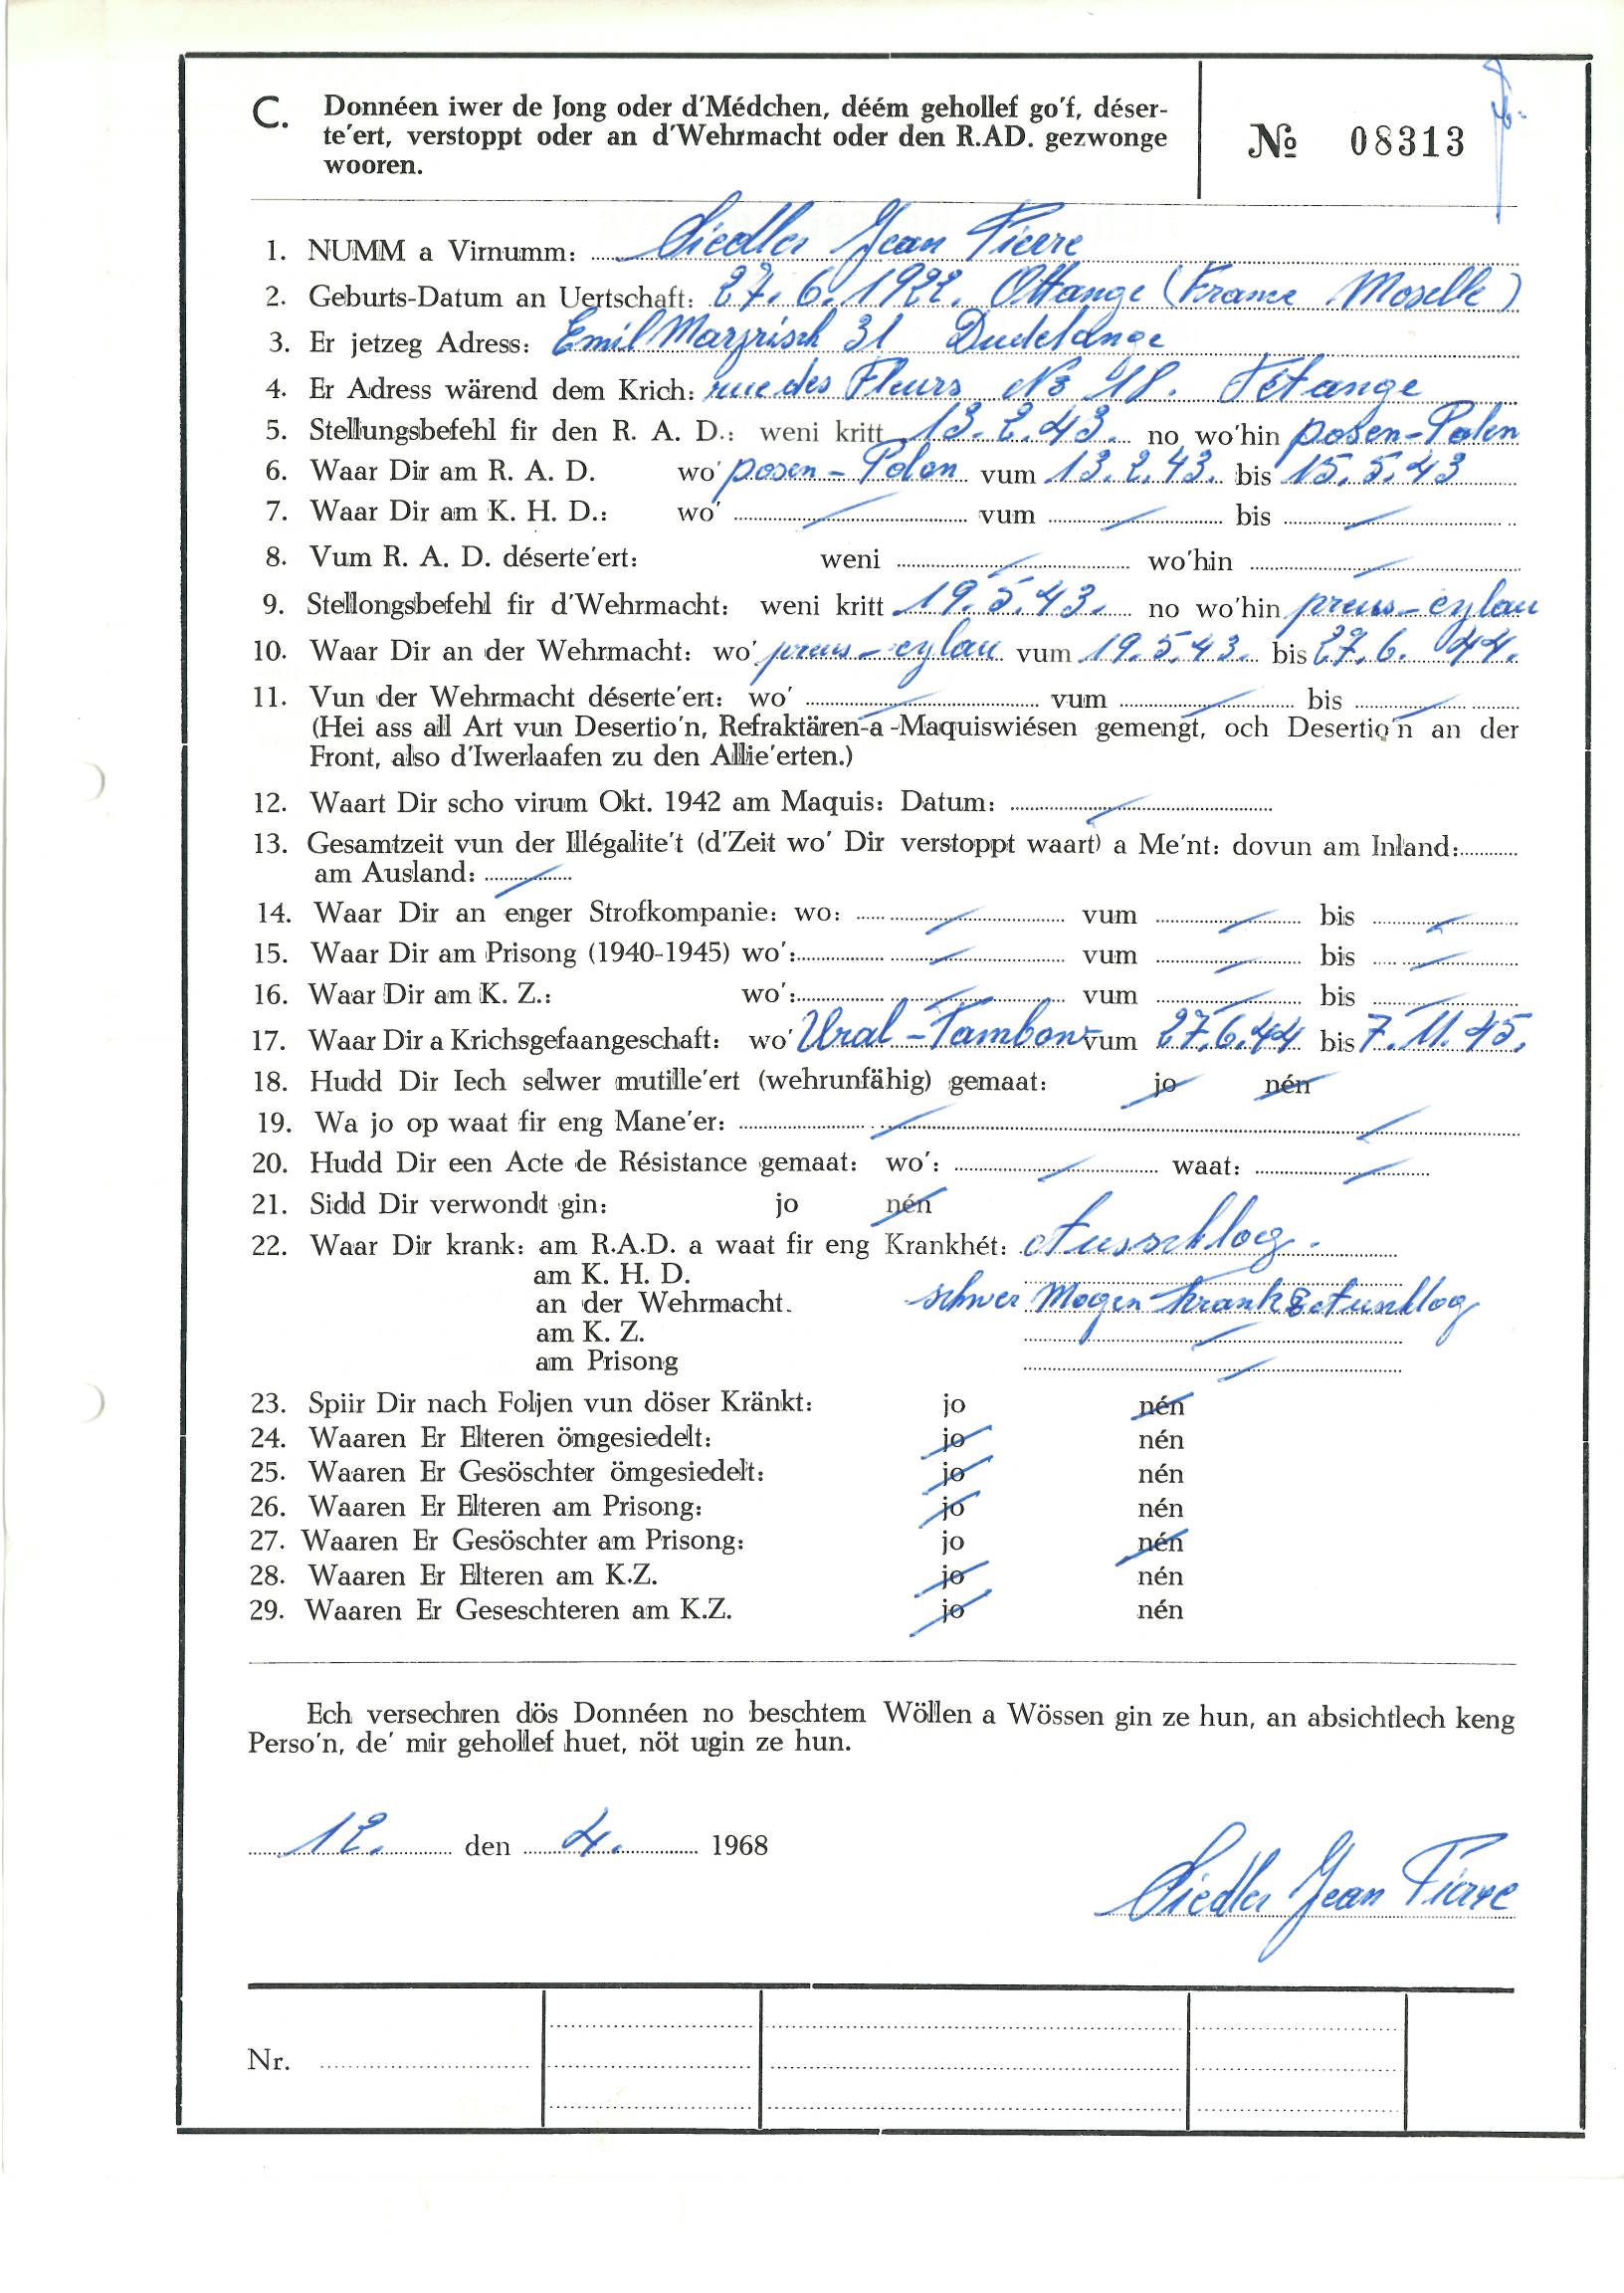 C. Donnéen iwer de Jong oder d'Médchen, déém gehollef go'f, déser-
te'ert, verstoppt oder an d'Wehrmacht oder den R.AD. gezwonge
wooren.
№ 08313
1. NUMM a Virnumm: Siedler Jean Pierre
2. Geburts-Datum an Uertschaft: 27.6.1922. Ottange (France Moselle)
3. Er jetzeg Adress: Emil Marzrisch 31 Dudelange
4. Er Adress wärend dem Krich: rue des Fleurs No 18. Tétange
5. Stellungsbefehl fir den R. A. D.: weni kritt 13.2.43. no wo'hin posen-Polen
6. Waar Dir am R. A. D. wo' posen-Polen vum 13.2.43. bis 15.5.43
7. Waar Dir am K. H. D.: wo' / vum / bis /
8. Vum R. A. D. déserte'ert: weni / wo'hin /
9. Stellongsbefehl fir d'Wehrmacht: weni kritt 19.5.43. no wo'hin preus-eylau
10. Waar Dir an der Wehrmacht: wo' preus-eylau vum 19.5.43. bis 27.6.44.
11. Vun der Wehrmacht déserte'ert: wo' / vum / bis /
(Hei ass all Art vun Desertio'n, Refraktären-a-Maquiswiésen gemengt, och Desertio'n an der
Front, also d'Iwerlaafen zu den Allie'erten.)
12. Waart Dir scho virum Okt. 1942 am Maquis: Datum: /
13. Gesamtzeit vun der Illégalite't (d'Zeit wo' Dir verstoppt waart) a Me'nt: dovun am Inland:
am Ausland: /
14. Waar Dir an enger Strofkompanie: wo: / vum / bis /
15. Waar Dir am Prisong (1940-1945) wo': / vum / bis /
16. Waar Dir am K. Z.: wo': / vum / bis /
17. Waar Dir a Krichsgefaangeschaft: wo' Ural-Tambow vum 27.6.44 bis 7.11.45.
18. Hudd Dir Iech selwer mutille'ert (wehrunfähig) gemaat: jo nén
19. Wa jo op waat fir eng Mane'er: / /
20. Hudd Dir een Acte de Résistance gemaat: wo': / waat: /
21. Sidd Dir verwondt gin: jo nén
22. Waar Dir krank: am R.A.D. a waat fir eng Krankhét: Ausschlog.
am K. H. D.
an der Wehrmacht. schwer Mogen-krank
am K. Z. /
am Prisong /
23. Spiir Dir nach Foljen vun döser Kränkt: jo nén
24. Waaren Er Elteren ömgesiedelt: jo nén
25. Waaren Er Gesöschter ömgesiedelt: jo nén
26. Waaren Er Elteren am Prisong: jo nén
27. Waaren Er Gesöschter am Prisong: jo nén
28. Waaren Er Elteren am K.Z. jo nén
29. Waaren Er Geseschteren am K.Z. jo nén
Ech versechren dös Donnéen no beschtem Wöllen a Wössen gin ze hun, an absichtlech keng
Perso'n, de' mir gehollef huet, nöt ugin ze hun.
12. den 4. 1968
Siedler Jean Pierre
Nr.